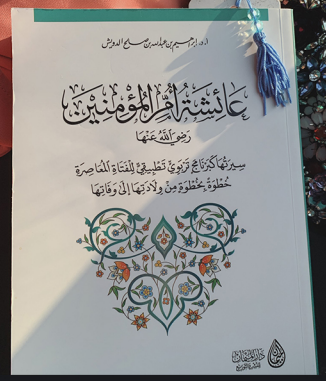 أ.د. إبراهيم بن عبدالله بن صالح الدويش
عائشة أم المؤمنين
رضي الله عنها
سيرتها كبرنامج تربوي تطبيقي للفتاة المعاصرة
خطوة بخطوة من ولادتها إلى وفاتها